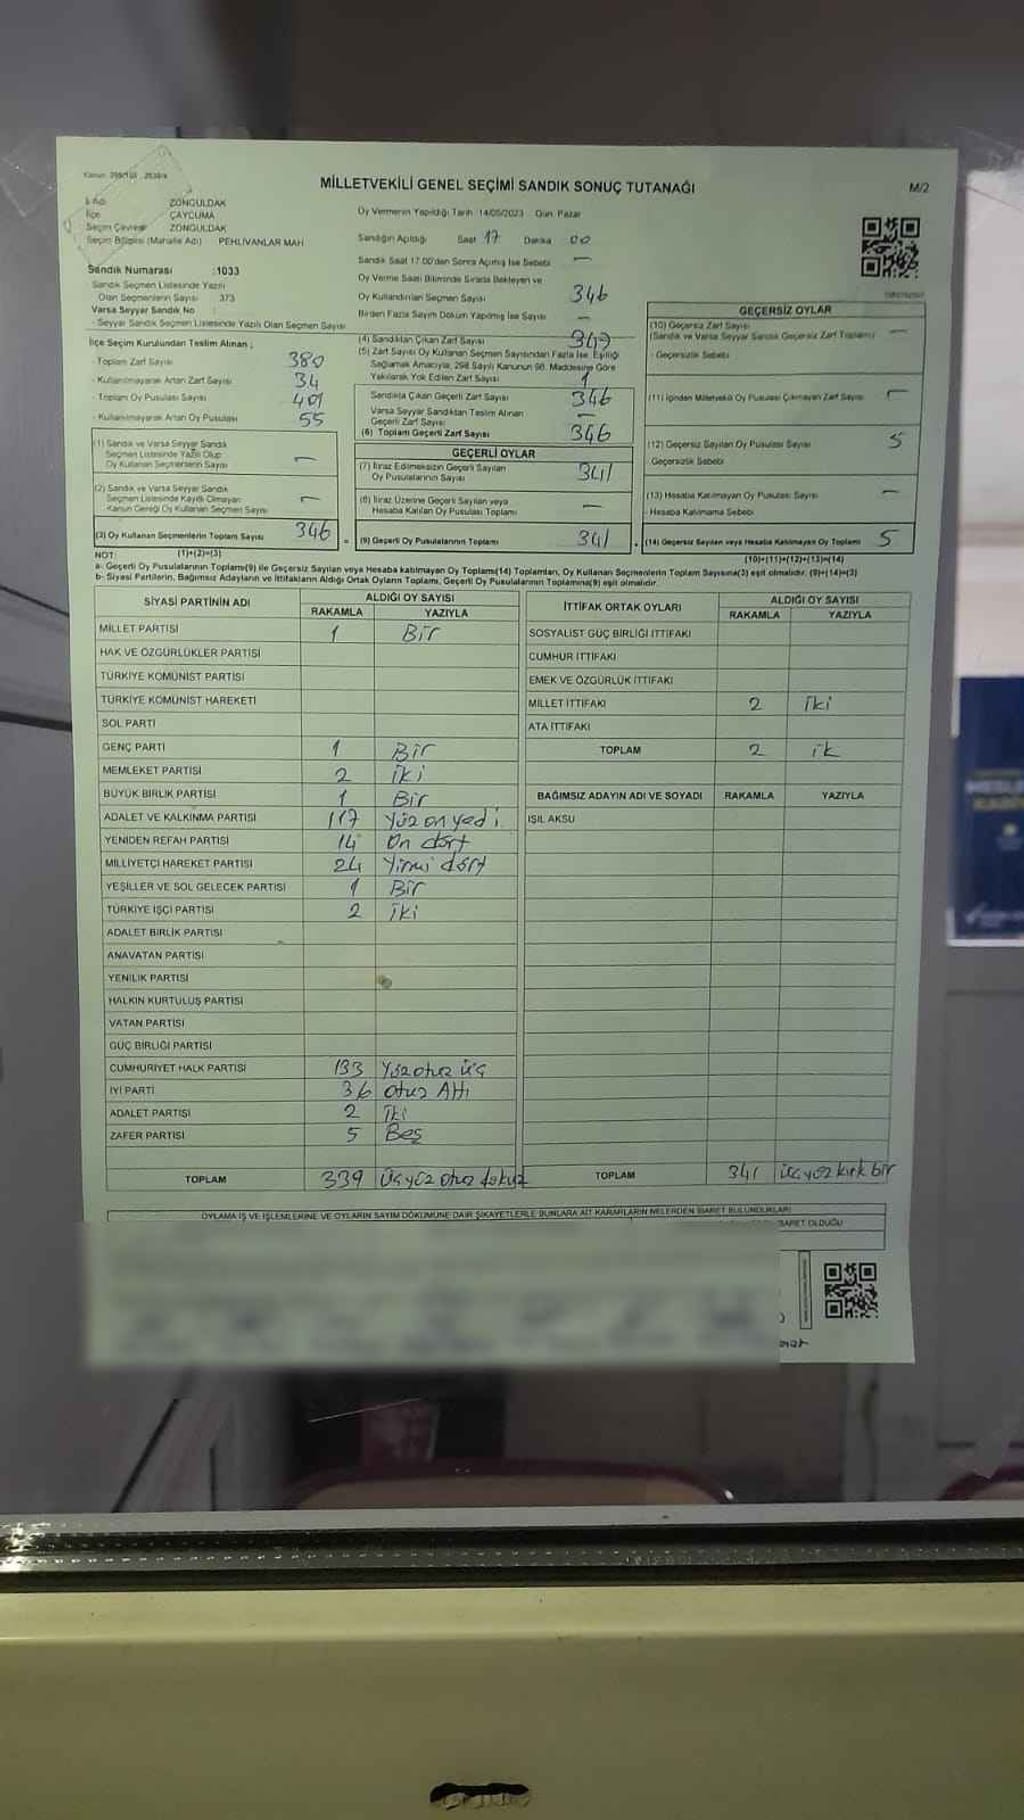 MİLLETVEKİLİ GENEL SEÇİMİ SANDIK SONUÇ TUTANAĞI
M/2
İl Adı ZONGULDAK
İlçe ÇAYCUMA
Seçim Çevresi ZONGULDAK
Seçim Bölgesi (Mahalle Adı) PEHLİVANLAR MAH
Sandık Numarası :1033
Sandık Seçmen Listesinde Yazılı
Olan Seçmenlerin Sayısı 373
Varsa Seyyar Sandık No :
- Seyyar Sandık Seçmen Listesinde Yazılı Olan Seçmen Sayısı
İlçe Seçim Kurulundan Teslim Alınan ;
- Toplam Zarf Sayısı 380
- Kullanılmayarak Artan Zarf Sayısı 34
- Toplam Oy Pusulası Sayısı 401
- Kullanılmayarak Artan Oy Pusulası 55
(1) Sandık ve Varsa Seyyar Sandık
Seçmen Listesinde Yazılı Olup
Oy Kullanan Seçmenlerin Sayısı —
(2) Sandık ve Varsa Seyyar Sandık
Seçmen Listesinde Kayıtlı Olmayan
Kanun Gereği Oy Kullanan Seçmen Sayısı —
(3) Oy Kullanan Seçmenlerin Toplam Sayısı 346
(1)+(2)=(3)
Oy Vermenin Yapıldığı Tarih :14/05/2023 Gün: Pazar
Sandığın Açıldığı Saat 17 Dakika 00
Sandık Saat 17.00'den Sonra Açılmış İse Sebebi —
Oy Verme Saati Bitiminde Sırada Bekleyen ve
Oy Kullandırılan Seçmen Sayısı 346
Birden Fazla Sayım Döküm Yapılmış İse Sayısı —
(4) Sandıktan Çıkan Zarf Sayısı 347
(5) Zarf Sayısı Oy Kullanan Seçmen Sayısından Fazla İse, Eşitliği
Sağlamak Amacıyla, 298 Sayılı Kanunun 98. Maddesine Göre
Yakılarak Yok Edilen Zarf Sayısı 1
Sandıkta Çıkan Geçerli Zarf Sayısı 346
Varsa Seyyar Sandıktan Teslim Alınan
Geçerli Zarf Sayısı —
(6) Toplam Geçerli Zarf Sayısı 346
GEÇERLİ OYLAR
(7) İtiraz Edilmeksizin Geçerli Sayılan
Oy Pusulalarının Sayısı 341
(8) İtiraz Üzerine Geçerli Sayılan veya
Hesaba Katılan Oy Pusulası Toplamı —
(9) Geçerli Oy Pusulalarının Toplamı 341
GEÇERSİZ OYLAR
(10) Geçersiz Zarf Sayısı
(Sandık ve Varsa Seyyar Sandık Geçersiz Zarf Toplamı) —
- Geçersizlik Sebebi
(11) İçinden Milletvekili Oy Pusulası Çıkmayan Zarf Sayısı —
(12) Geçersiz Sayılan Oy Pusulası Sayısı 5
- Geçersizlik Sebebi
(13) Hesaba Katılmayan Oy Pusulası Sayısı —
- Hesaba Katılmama Sebebi
(14) Geçersiz Sayılan veya Hesaba Katılmayan Oy Toplamı 5
(10)+(11)+(12)+(13)=(14)
NOT:
a- Geçerli Oy Pusulalarının Toplamı(9) ile Geçersiz Sayılan veya Hesaba katılmayan Oy Toplamı(14) Toplamları, Oy Kullanan Seçmenlerin Toplam Sayısına(3) eşit olmalıdır. (9)+(14)=(3)
b- Siyasi Partilerin, Bağımsız Adayların ve İttifakların Aldığı Ortak Oyların Toplamı, Geçerli Oy Pusulalarının Toplamına(9) eşit olmalıdır.
SİYASİ PARTİNİN ADI ALDIĞI OY SAYISI
RAKAMLA YAZIYLA
MİLLET PARTİSİ 1 Bir
HAK VE ÖZGÜRLÜKLER PARTİSİ
TÜRKİYE KOMÜNİST PARTİSİ
TÜRKİYE KOMÜNİST HAREKETİ
SOL PARTİ
GENÇ PARTİ 1 Bir
MEMLEKET PARTİSİ 2 iki
BÜYÜK BİRLİK PARTİSİ 1 Bir
ADALET VE KALKINMA PARTİSİ 117 Yüz on yedi
YENİDEN REFAH PARTİSİ 14 On dört
MİLLİYETÇİ HAREKET PARTİSİ 24 Yirmi dört
YEŞİLLER VE SOL GELECEK PARTİSİ 1 Bir
TÜRKİYE İŞÇİ PARTİSİ 2 İki
ADALET BİRLİK PARTİSİ
ANAVATAN PARTİSİ
YENİLİK PARTİSİ
HALKIN KURTULUŞ PARTİSİ
VATAN PARTİSİ
GÜÇ BİRLİĞİ PARTİSİ
CUMHURİYET HALK PARTİSİ 133 Yüz otuz üç
İYİ PARTİ 36 Otuz Altı
ADALET PARTİSİ 2 İki
ZAFER PARTİSİ 5 Beş
TOPLAM 339 Üçyüz otuz dokuz
İTTİFAK ORTAK OYLARI ALDIĞI OY SAYISI
RAKAMLA YAZIYLA
SOSYALİST GÜÇ BİRLİĞİ İTTİFAKI
CUMHUR İTTİFAKI
EMEK VE ÖZGÜRLÜK İTTİFAKI
MİLLET İTTİFAKI 2 İki
ATA İTTİFAKI
TOPLAM 2 ik
BAĞIMSIZ ADAYIN ADI VE SOYADI RAKAMLA YAZIYLA
IŞIL AKSU
TOPLAM 341 Üçyüz kırk bir
OYLAMA İŞ VE İŞLEMLERİNE VE OYLARIN SAYIM DÖKÜMÜNE DAİR ŞİKAYETLERLE BUNLARA AİT KARARLARIN NELERDEN İBARET BULUNDUKLARI